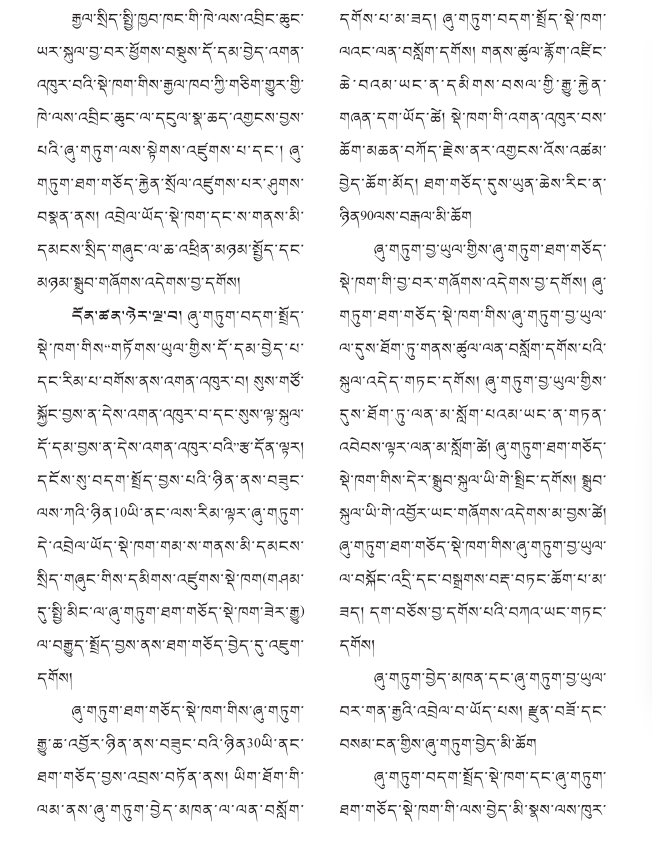 རྒྱལ་སྲིད་སྤྱི་ཁྱབ་ཁང་གི་ཁེ་ལས་འབྲིང་ཆུང་
ཡར་སྐུལ་བྱ་བར་ཕྱོགས་བསྡུས་དོ་དམ་བྱེད་འགན་
འཁུར་བའི་སྡེ་ཁག་གིས་རྒྱལ་ཁབ་ཀྱི་གཅིག་གྱུར་གྱི་
ཁེ་ལས་འབྲིང་ཆུང་ལ་དངུལ་སྣ་ཆད་འགྱངས་བྱས་
པའི་ཞུ་གཏུག་ལས་སྟེགས་འཛུགས་པ་དང་། ཞུ་
གཏུག་ཐག་གཅོད་རྐྱེན་སྲོལ་འཛུགས་པར་ཤུགས་
བསྣན་ནས། འབྲེལ་ཡོད་སྡེ་ཁག་དང་ས་གནས་མི་
དམངས་སྲིད་གཞུང་ལ་ཆ་འཕྲིན་མཉམ་སྤྱོད་དང་
མཉམ་སྒྲུབ་གཞོགས་འདེགས་བྱ་དགོས།
དོན་ཚན་ཉེར་ལྔ་བ། ཞུ་གཏུག་བདག་སྤྲོད་
སྡེ་ཁག་གིས“གཏོགས་ཡུལ་གྱིས་དོ་དམ་བྱེད་པ་
དང་རིམ་པ་བགོས་ནས་འགན་འཁུར་བ། སུས་གཙོ་
སྐྱོང་བྱས་ན་དེས་འགན་འཁུར་བ་དང་སུས་ལྟ་སྐུལ་
དོ་དམ་བྱས་ན་དེས་འགན་འཁུར་བའི”རྩ་དོན་ལྟར།
དངོས་སུ་བདག་སྤྲོད་བྱས་པའི་ཉིན་ནས་བཟུང་
ལས་ཀའི་ཉིན10ཡི་ནང་ལས་རིམ་ལྟར་ཞུ་གཏུག་
དེ་འབྲེལ་ཡོད་སྡེ་ཁག་གམ་ས་གནས་མི་དམངས་
སྲིད་གཞུང་གིས་དམིགས་འཛུགས་སྡེ་ཁག(གཤམ་
དུ་སྤྱི་མིང་ལ་ཞུ་གཏུག་ཐག་གཅོད་སྡེ་ཁག་ཟེར་རྒྱུ)
ལ་བརྒྱུད་སྤྲོད་བྱས་ནས་ཐག་གཅོད་བྱེད་དུ་འཇུག་
དགོས།
ཞུ་གཏུག་ཐག་གཅོད་སྡེ་ཁག་གིས་ཞུ་གཏུག་
རྒྱུ་ཆ་འབྱོར་ཉིན་ནས་བཟུང་བའི་ཉིན30ཡི་ནང་
ཐག་གཅོད་བྱས་འབྲས་བཏོན་ནས། ཡིག་ཐོག་གི་
ལམ་ནས་ཞུ་གཏུག་བྱེད་མཁན་ལ་ལན་བསློག་
དགོས་པ་མ་ཟད། ཞུ་གཏུག་བདག་སྤྲོད་སྡེ་ཁག་
ལའང་ལན་བསློག་དགོས། གནས་ཚུལ་རྙོག་འཛིང་
ཆེ་བའམ་ཡང་ན་དམིགས་བསལ་གྱི་རྒྱུ་རྐྱེན་
གཞན་དག་ཡོད་ཚེ། སྡེ་ཁག་གི་འགན་འཁུར་བས་
ཆོག་མཆན་བཀོད་རྗེས་ནར་འགྱངས་འོས་འཚམ་
བྱེད་ཆོག་མོད། ཐག་གཅོད་དུས་ཡུན་ཆེས་རིང་ན་
ཉིན90ལས་བརྒལ་མི་ཆོག
ཞུ་གཏུག་བྱ་ཡུལ་གྱིས་ཞུ་གཏུག་ཐག་གཅོད་
སྡེ་ཁག་གི་བྱ་བར་གཞོགས་འདེགས་བྱ་དགོས། ཞུ་
གཏུག་ཐག་གཅོད་སྡེ་ཁག་གིས་ཞུ་གཏུག་བྱ་ཡུལ་
ལ་དུས་ཐོག་ཏུ་གནས་ཚུལ་ལན་བསློག་དགོས་པའི་
སྐུལ་འདེད་གཏང་དགོས། ཞུ་གཏུག་བྱ་ཡུལ་གྱིས་
དུས་ཐོག་ཏུ་ལན་མ་སློག་པའམ་ཡང་ན་གཏན་
འབེབས་ལྟར་ལན་མ་སློག་ཚེ། ཞུ་གཏུག་ཐག་གཅོད་
སྡེ་ཁག་གིས་དེར་སྒྲུབ་སྐུལ་ཡི་གེ་སྤྲིང་དགོས། སྒྲུབ་
སྐུལ་ཡི་གེ་འབྱོར་ཡང་གཞོགས་འདེགས་མ་བྱས་ཚེ།
ཞུ་གཏུག་ཐག་གཅོད་སྡེ་ཁག་གིས་ཞུ་གཏུག་བྱ་ཡུལ་
ལ་བསྐོང་འདྲི་དང་བསྒྲགས་བརྡ་བཏང་ཆོག་པ་མ་
ཟད། དག་བཅོས་བྱ་དགོས་པའི་བཀའ་ཡང་གཏང་
དགོས།
ཞུ་གཏུག་བྱེད་མཁན་དང་ཞུ་གཏུག་བྱ་ཡུལ་
བར་གན་རྒྱའི་འབྲེལ་བ་ཡོད་པས། རྫུན་བཟོ་དང་
བསམ་ངན་གྱིས་ཞུ་གཏུག་བྱེད་མི་ཆོག
ཞུ་གཏུག་བདག་སྤྲོད་སྡེ་ཁག་དང་ཞུ་གཏུག་
ཐག་གཅོད་སྡེ་ཁག་གི་ལས་བྱེད་མི་སྣས་ལས་ཁུར་